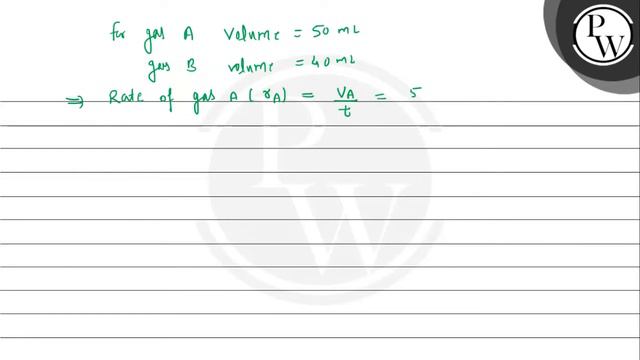 P
W
for gas A Volume = 50 mL
gas B volume = 40 mL
⇒ Rate of gas A (rA) = VA/t = 5
P
W